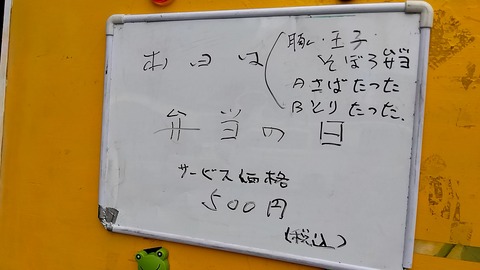 本日は
玉子
そぼろ弁当
A さばたつた
B とりたつた.
弁当の日
サービス価格
500円
(税込)